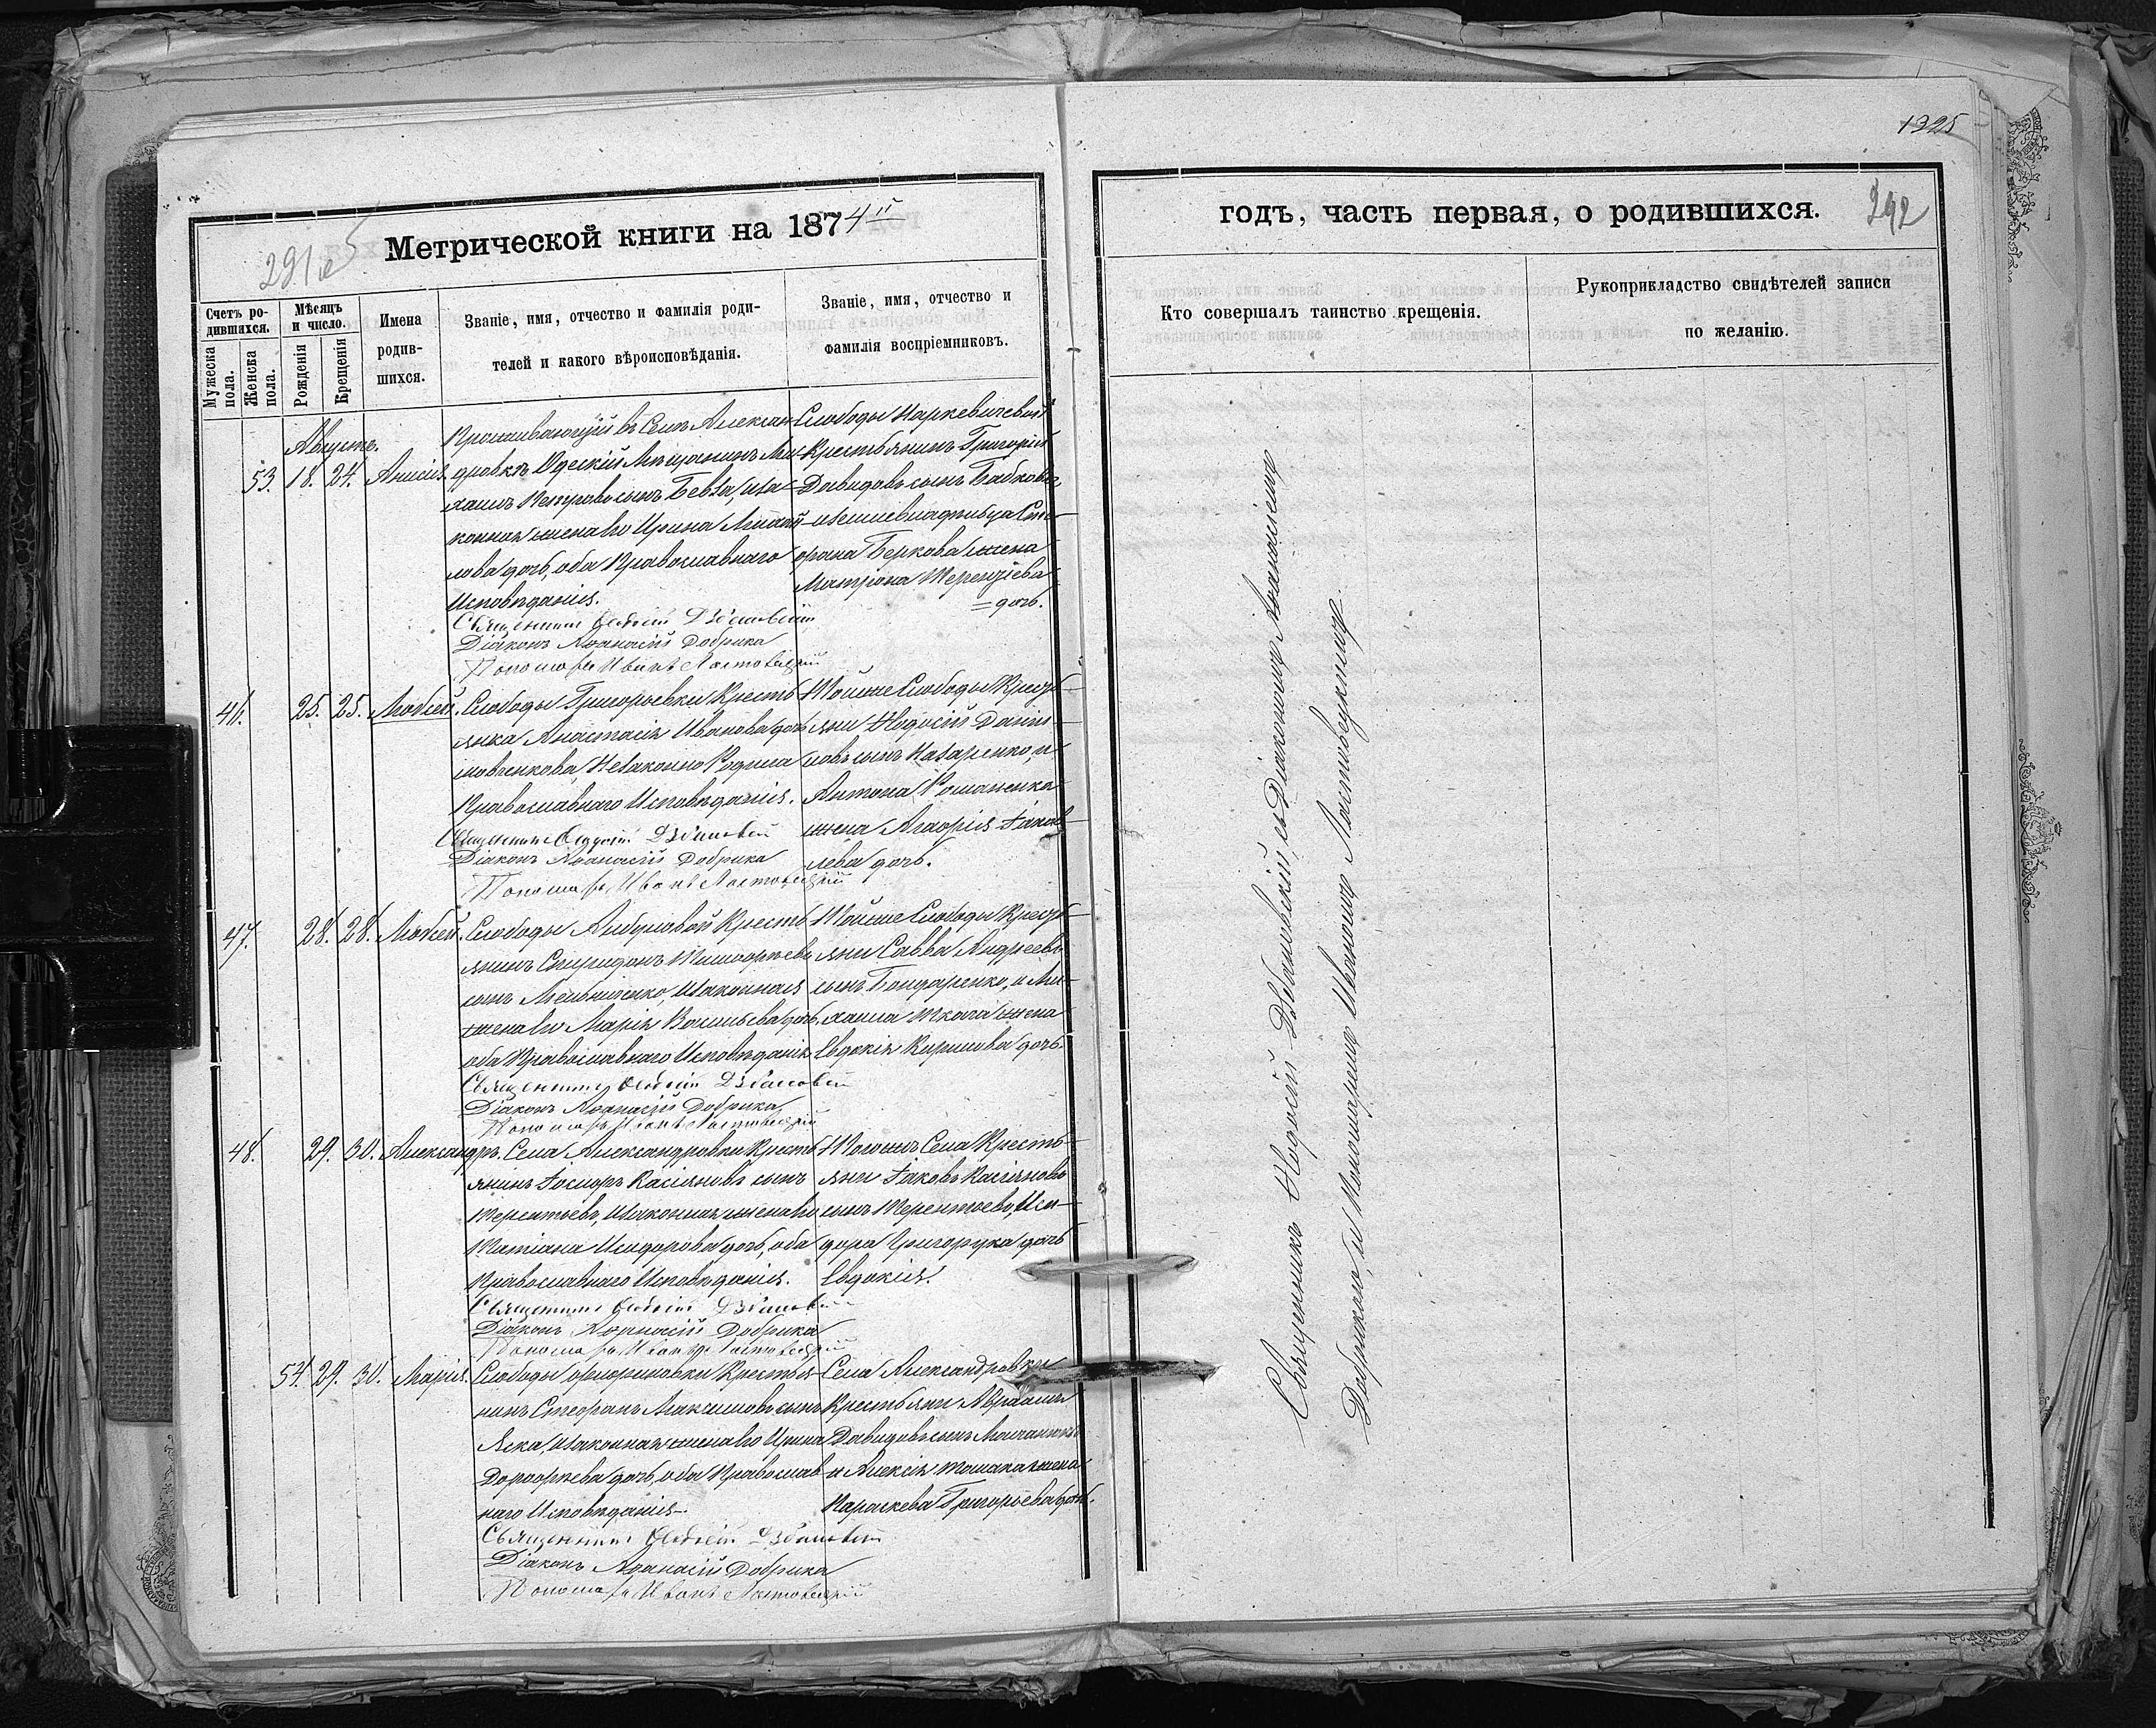 1325
Метрической книги на 1874й
годъ, часть первая, о родившихся.
292
Счетъ родившихся.
Мужеска пола.
Женска пола.
Мѣсяцъ и число.
Рожденія
Крещенія
Имена родившихся.
Званіе, имя, отчество и фамилія родителей и какого вѣроисповѣданія.
Званіе, имя, отчество и фамилія воспріемниковъ.
Кто совершалъ таинство крещенія.
Рукоприкладство свидѣтелей записи по желанію.
Августъ.
53. 18. 24. Анисія.
Проживающій въ Селѣ Алексан-
дровкѣ Одескій Мѣщанинъ Ми-
хаилъ Петровъ сынъ Бевза, иза-
конная жена его Ирина Михай-
лова дочь, оба Православнаго
Исповѣданія.
Священникъ Ѳеодосій Дзбановскій
Діаконъ Аѳанасій Добрика
Пономарь Иванъ Ластовецкій
Слободы
Крестьянинъ Григорій
Давидовъ сынъ
жена
Матрона Терентіева
дочь.
46. 25. 25. Мойсей.
Слободы Григорьевки Кресть-
янка Анастасія Иванова дочь
Незаконно Родила
Православнаго Исповѣданія.
Священникъ Ѳеодосій Дзбановскій
Діаконъ Аѳанасій Добрика
Пономарь Иванъ Ластовецкій
Тойже Слободы Кресть-
яни Ѳеодосій Данни-
ловъ сынъ Назаренко, и
Антона Романенка
жена Агафія Іаков-
лева дочь.
47. 28. 28. Мойсей.
Слободы Кресть-
янинъ Спиридонъ Тимоѳеевъ
сынъ Мельниченко, изаконная
жена его Марія Васильева дочь,
оба Православнаго Исповѣданія
Священникъ Ѳеодосій Дзбановскій
Діаконъ Аѳанасій Добрика
Пономарь Иванъ Ластовецкій
Тойже Слободы Кресть-
яни Савва Андреевъ
сынъ Бондаренко, и Ми-
хаила Ткача жена
Евдокія Кирилова дочь.
48. 29. 30. Александръ.
Села Александровки Кресть-
янинъ Касіяновъ сынъ
Терентьевъ, изаконная жена его
Татіана Исидорова дочь, оба
Православнаго Исповѣданія.
Священникъ Ѳеодосій Дзбановскій
Діаконъ Аѳанасій Добрика
Пономарь Иванъ Ластовецкій
Тогожъ Села Кресть-
яни Іаковъ Касіяновъ
сынъ Терентьевъ, Иси-
дора Григорука дочь
Евдокія.
54. 29. 30. Марія.
Слободы Крестья-
нинъ Стефанъ Максимовъ сынъ
изаконная жена его Ирина
Дороѳеева дочь, оба Православ-
наго Исповѣданія.
Священникъ Ѳеодосій Дзбановскій
Діаконъ Аѳанасій Добрика
Пономарь Иванъ Ластовецкій
Села Александровки
Крестьяни Авраамъ
Давидовъ сынъ
и Алексія жена
Параскева Григорьева дочь.
Священникъ Ѳеодосій Дзбановскій, съ Діакономъ Аѳанасіемъ
Добрикою, и Пономаремъ Иваномъ Ластовецкимъ.